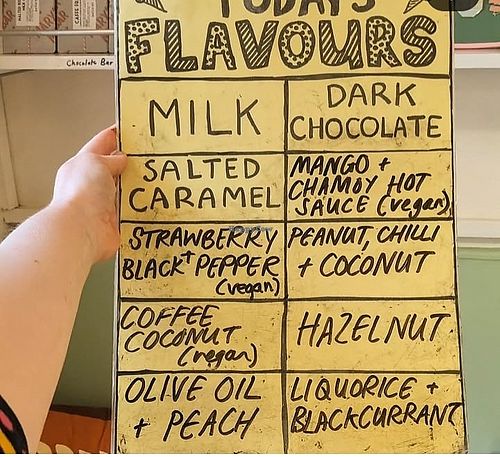 TODAY'S
FLAVOURS
Chocolate Bar
MILK
DARK
CHOCOLATE
SALTED
CARAMEL
MANGO +
CHAMOY HOT
SAUCE (vegan)
STRAWBERRY
+
BLACK PEPPER
(vegan)
PEANUT, CHILLI
+ COCONUT
COFFEE
COCONUT
(vegan)
HAZELNUT
OLIVE OIL
+ PEACH
LIQUORICE +
BLACKCURRANT